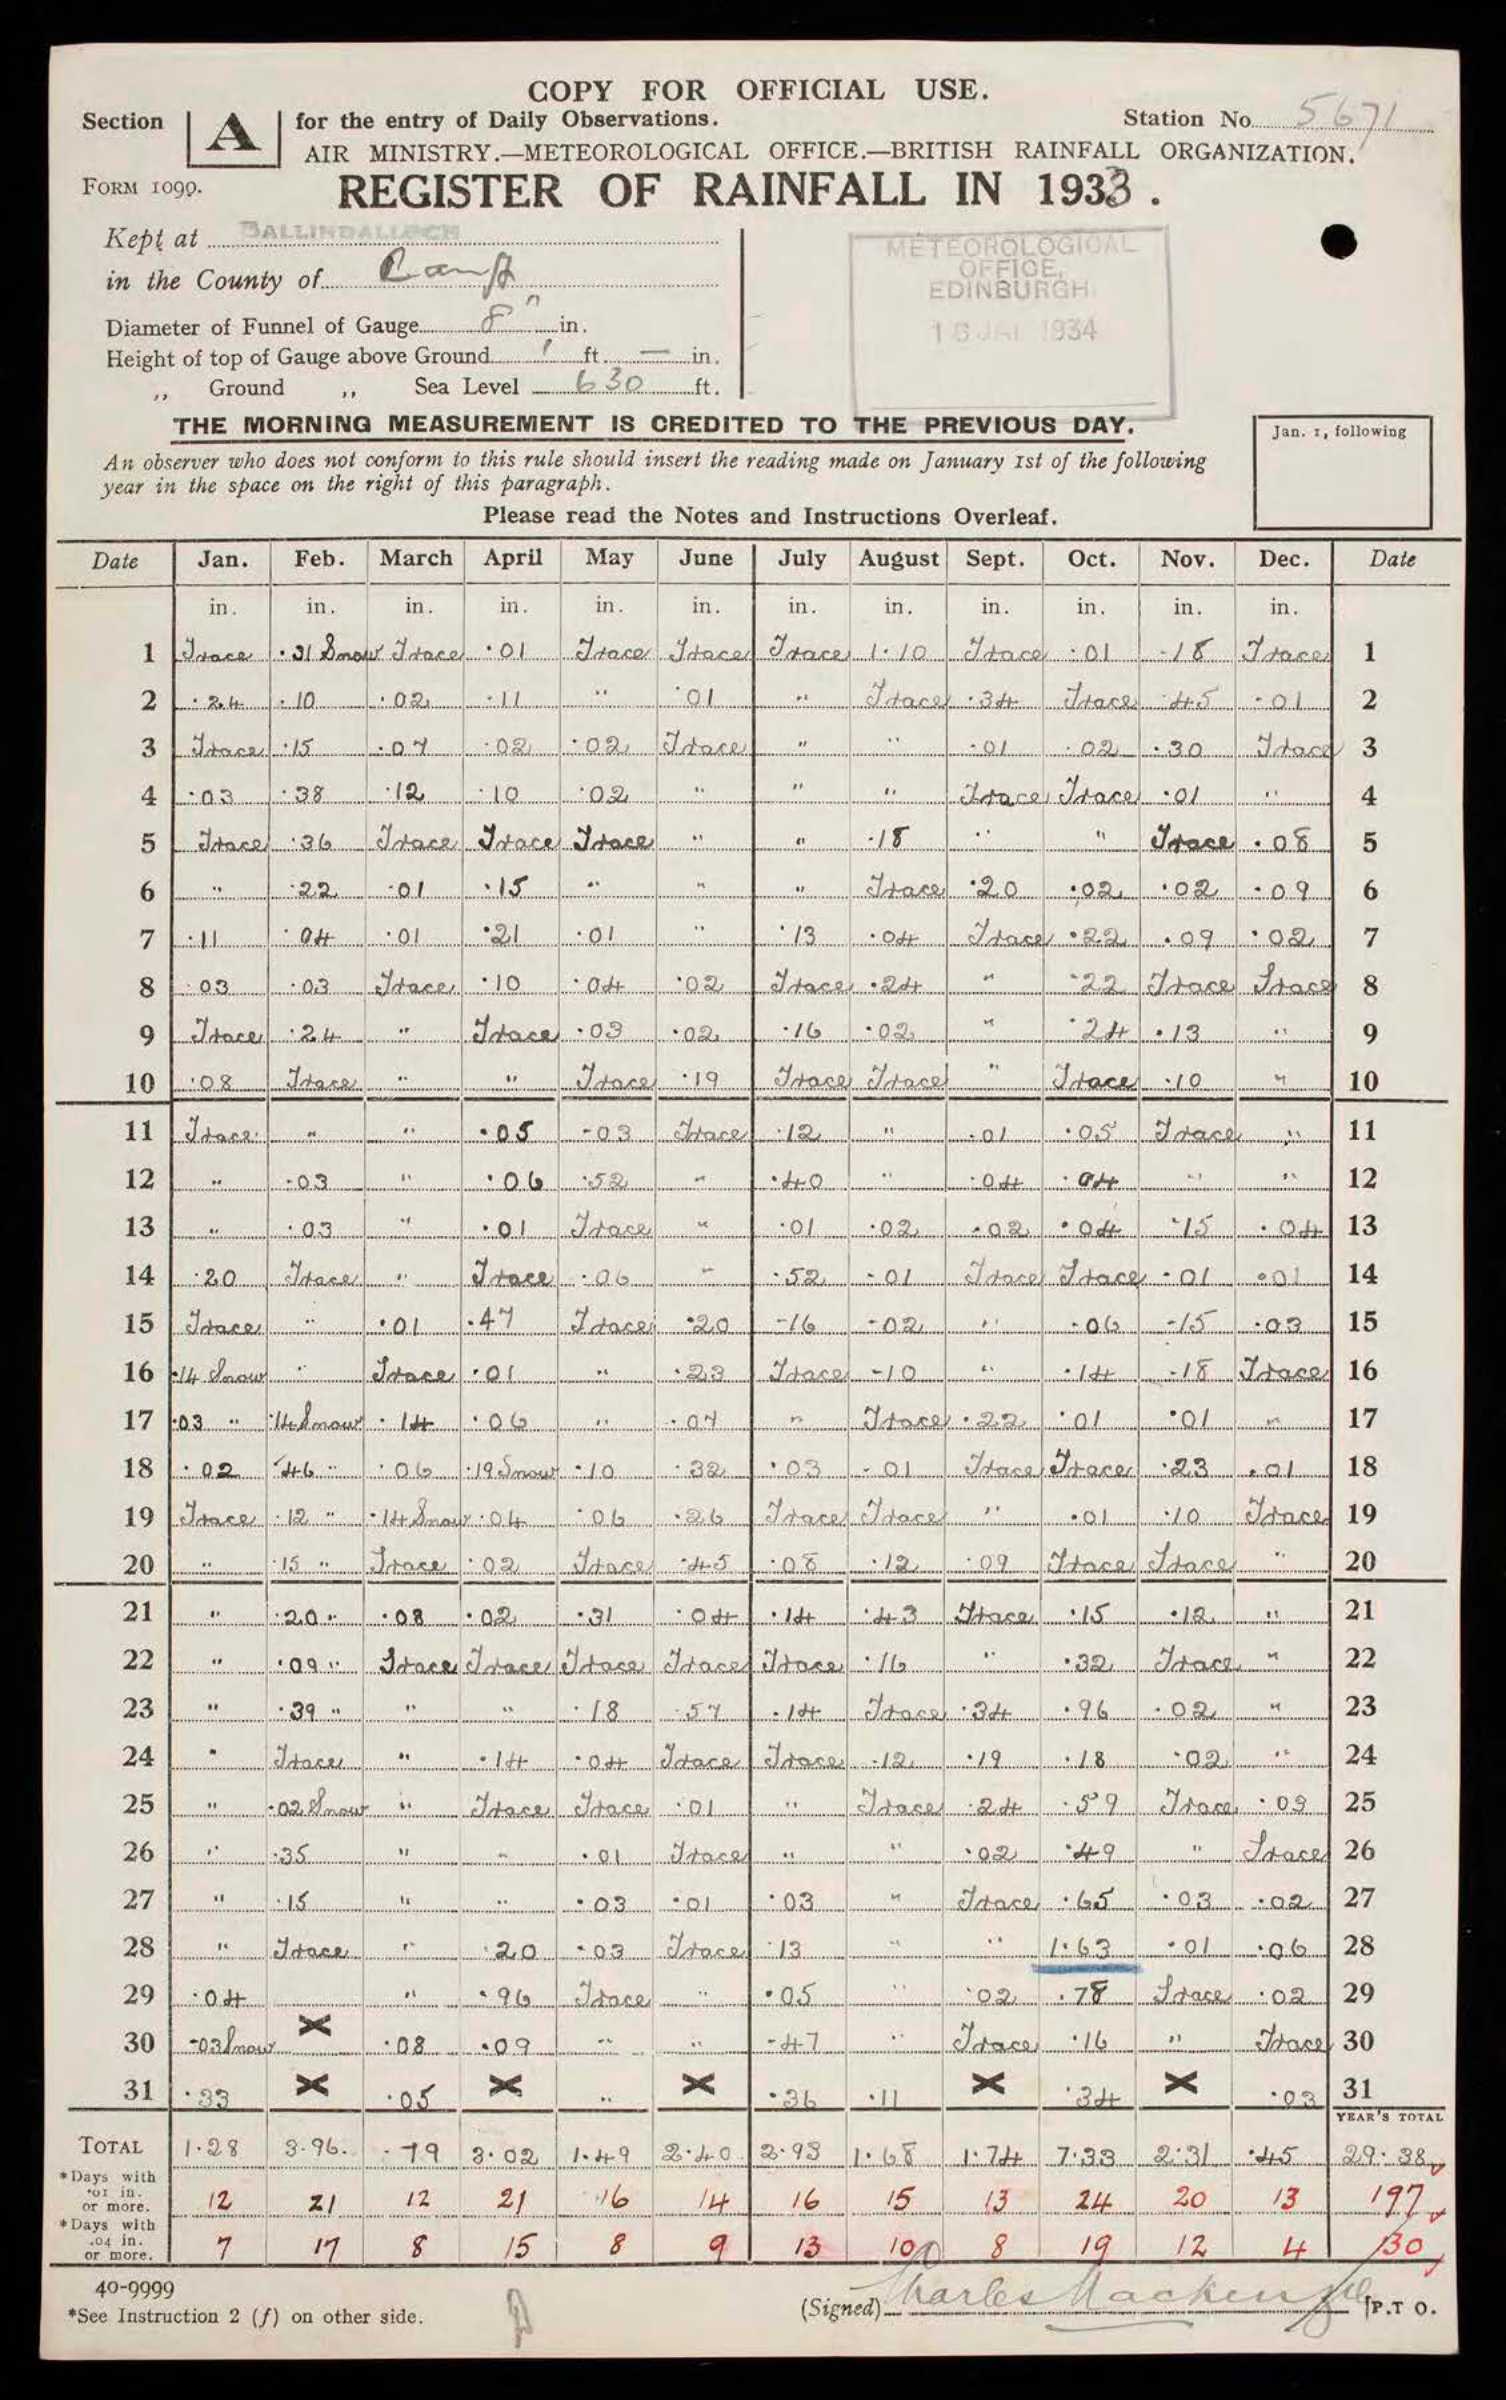 COPY FOR OFFICIAL USE.
Section A for the entry of Daily Observations. Station No. 5671
AIR MINISTRY.—METEOROLOGICAL OFFICE.—BRITISH RAINFALL ORGANIZATION.
FORM 1090. REGISTER OF RAINFALL IN 1933.
Kept at BALLINDALLOCH
in the County of Banff
Diameter of Funnel of Gauge 8" in.
Height of top of Gauge above Ground 1 ft. — in.
,, Ground ,, Sea Level 630 ft.
METEOROLOGICAL
OFFICE,
EDINBURGH
1934
THE MORNING MEASUREMENT IS CREDITED TO THE PREVIOUS DAY.
An observer who does not conform to this rule should insert the reading made on January 1st of the following
year in the space on the right of this paragraph.
Jan. 1, following
Please read the Notes and Instructions Overleaf.
Date Jan. Feb. March April May June July August Sept. Oct. Nov. Dec. Date
in. in. in. in. in. in. in. in. in. in. in. in.
1 Trace ·31 Snow Trace ·01 Trace Trace Trace 1·10 Trace ·01 ·18 Trace 1
2 ·24 ·10 ·02 ·11 " ·01 " Trace ·34 Trace ·45 ·01 2
3 Trace ·15 ·07 ·02 ·02 Trace " " ·01 ·02 ·30 Trace 3
4 ·03 ·38 ·12 ·10 ·02 " " " Trace Trace ·01 " 4
5 Trace ·36 Trace Trace Trace " " ·18 " " Trace ·08 5
6 " ·22 ·01 ·15 " " " Trace ·20 ·02 ·02 ·09 6
7 ·11 ·04 ·01 ·21 ·01 " ·13 ·04 Trace ·22 ·09 ·02 7
8 ·03 ·03 Trace ·10 ·04 ·02 Trace ·24 " ·22 Trace Trace 8
9 Trace ·24 " Trace ·03 ·02 ·16 ·02 " ·24 ·13 " 9
10 ·08 Trace " " Trace ·19 Trace Trace " Trace ·10 " 10
11 Trace " " ·05 ·03 Trace ·12 " ·01 ·05 Trace " 11
12 " ·03 " ·06 ·52 " ·40 " ·04 ·04 " " 12
13 " ·03 " ·01 Trace " ·01 ·02 ·02 ·04 ·15 ·04 13
14 ·20 Trace " Trace ·06 " ·52 ·01 Trace Trace ·01 ·01 14
15 Trace " ·01 ·47 Trace ·20 ·16 ·02 " ·06 ·15 ·03 15
16 ·14 Snow " Trace ·01 " ·23 Trace ·10 " ·14 ·18 Trace 16
17 ·03 " ·14 Snow ·14 ·06 " ·07 " Trace ·22 ·01 ·01 " 17
18 ·02 ·46 " ·06 ·19 Snow ·10 ·32 ·03 ·01 Trace Trace ·23 ·01 18
19 Trace ·12 " ·14 Snow ·04 ·06 ·26 Trace Trace " ·01 ·10 Trace 19
20 " ·15 " Trace ·02 Trace ·45 ·08 ·12 ·09 Trace Trace " 20
21 " ·20 " ·08 ·02 ·31 ·04 ·14 ·43 Trace ·15 ·12 " 21
22 " ·09 " Trace Trace Trace Trace Trace ·16 " ·32 Trace " 22
23 " ·39 " " " ·18 ·57 ·14 Trace ·34 ·96 ·02 " 23
24 " Trace " ·14 ·04 Trace Trace ·12 ·19 ·18 ·02 " 24
25 " ·02 Snow " Trace Trace ·01 " Trace ·24 ·59 Trace ·03 25
26 " ·35 " " ·01 Trace " " ·02 ·49 " Trace 26
27 " ·15 " " ·03 ·01 ·03 " Trace ·65 ·03 ·02 27
28 " Trace " ·20 ·03 Trace ·13 " " 1·63 ·01 ·06 28
29 ·04 " ·96 Trace " ·05 " ·02 ·78 Trace ·02 29
30 ·03 Snow X ·08 ·09 " " ·47 " Trace ·16 " Trace 30
31 ·33 X ·05 X " X ·36 ·11 X ·34 X ·03 31
YEAR'S TOTAL
TOTAL 1·28 3·96. ·79 3·02 1·49 2·40 2·93 1·68 1·74 7·33 2·31 ·45 29·38
*Days with ·01 in. or more. 12 21 12 21 16 14 16 15 13 24 20 13 197
*Days with .04 in. or more. 7 17 8 15 8 9 13 10 8 19 12 4 130
40-9999
*See Instruction 2 (f) on other side.
(Signed) Charles Mackenzie [P.T O.